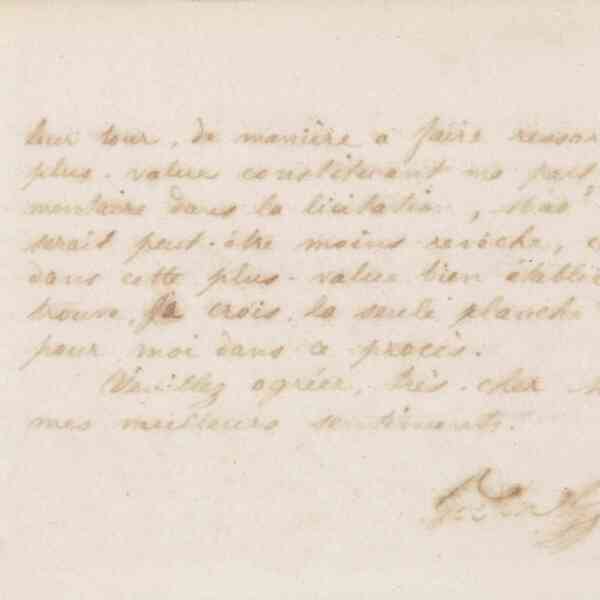 leur tour, de manière a faire ressor
plus-values constituant ma part
mentaire dans la licitation, Mad
serait peut-être moins revêche, c
dans cette plus-value bien établie
trouve, je crois, la seule planche
pour moi dans ce procès.
Veuillez agréer, très-cher
mes meilleurs sentiments.